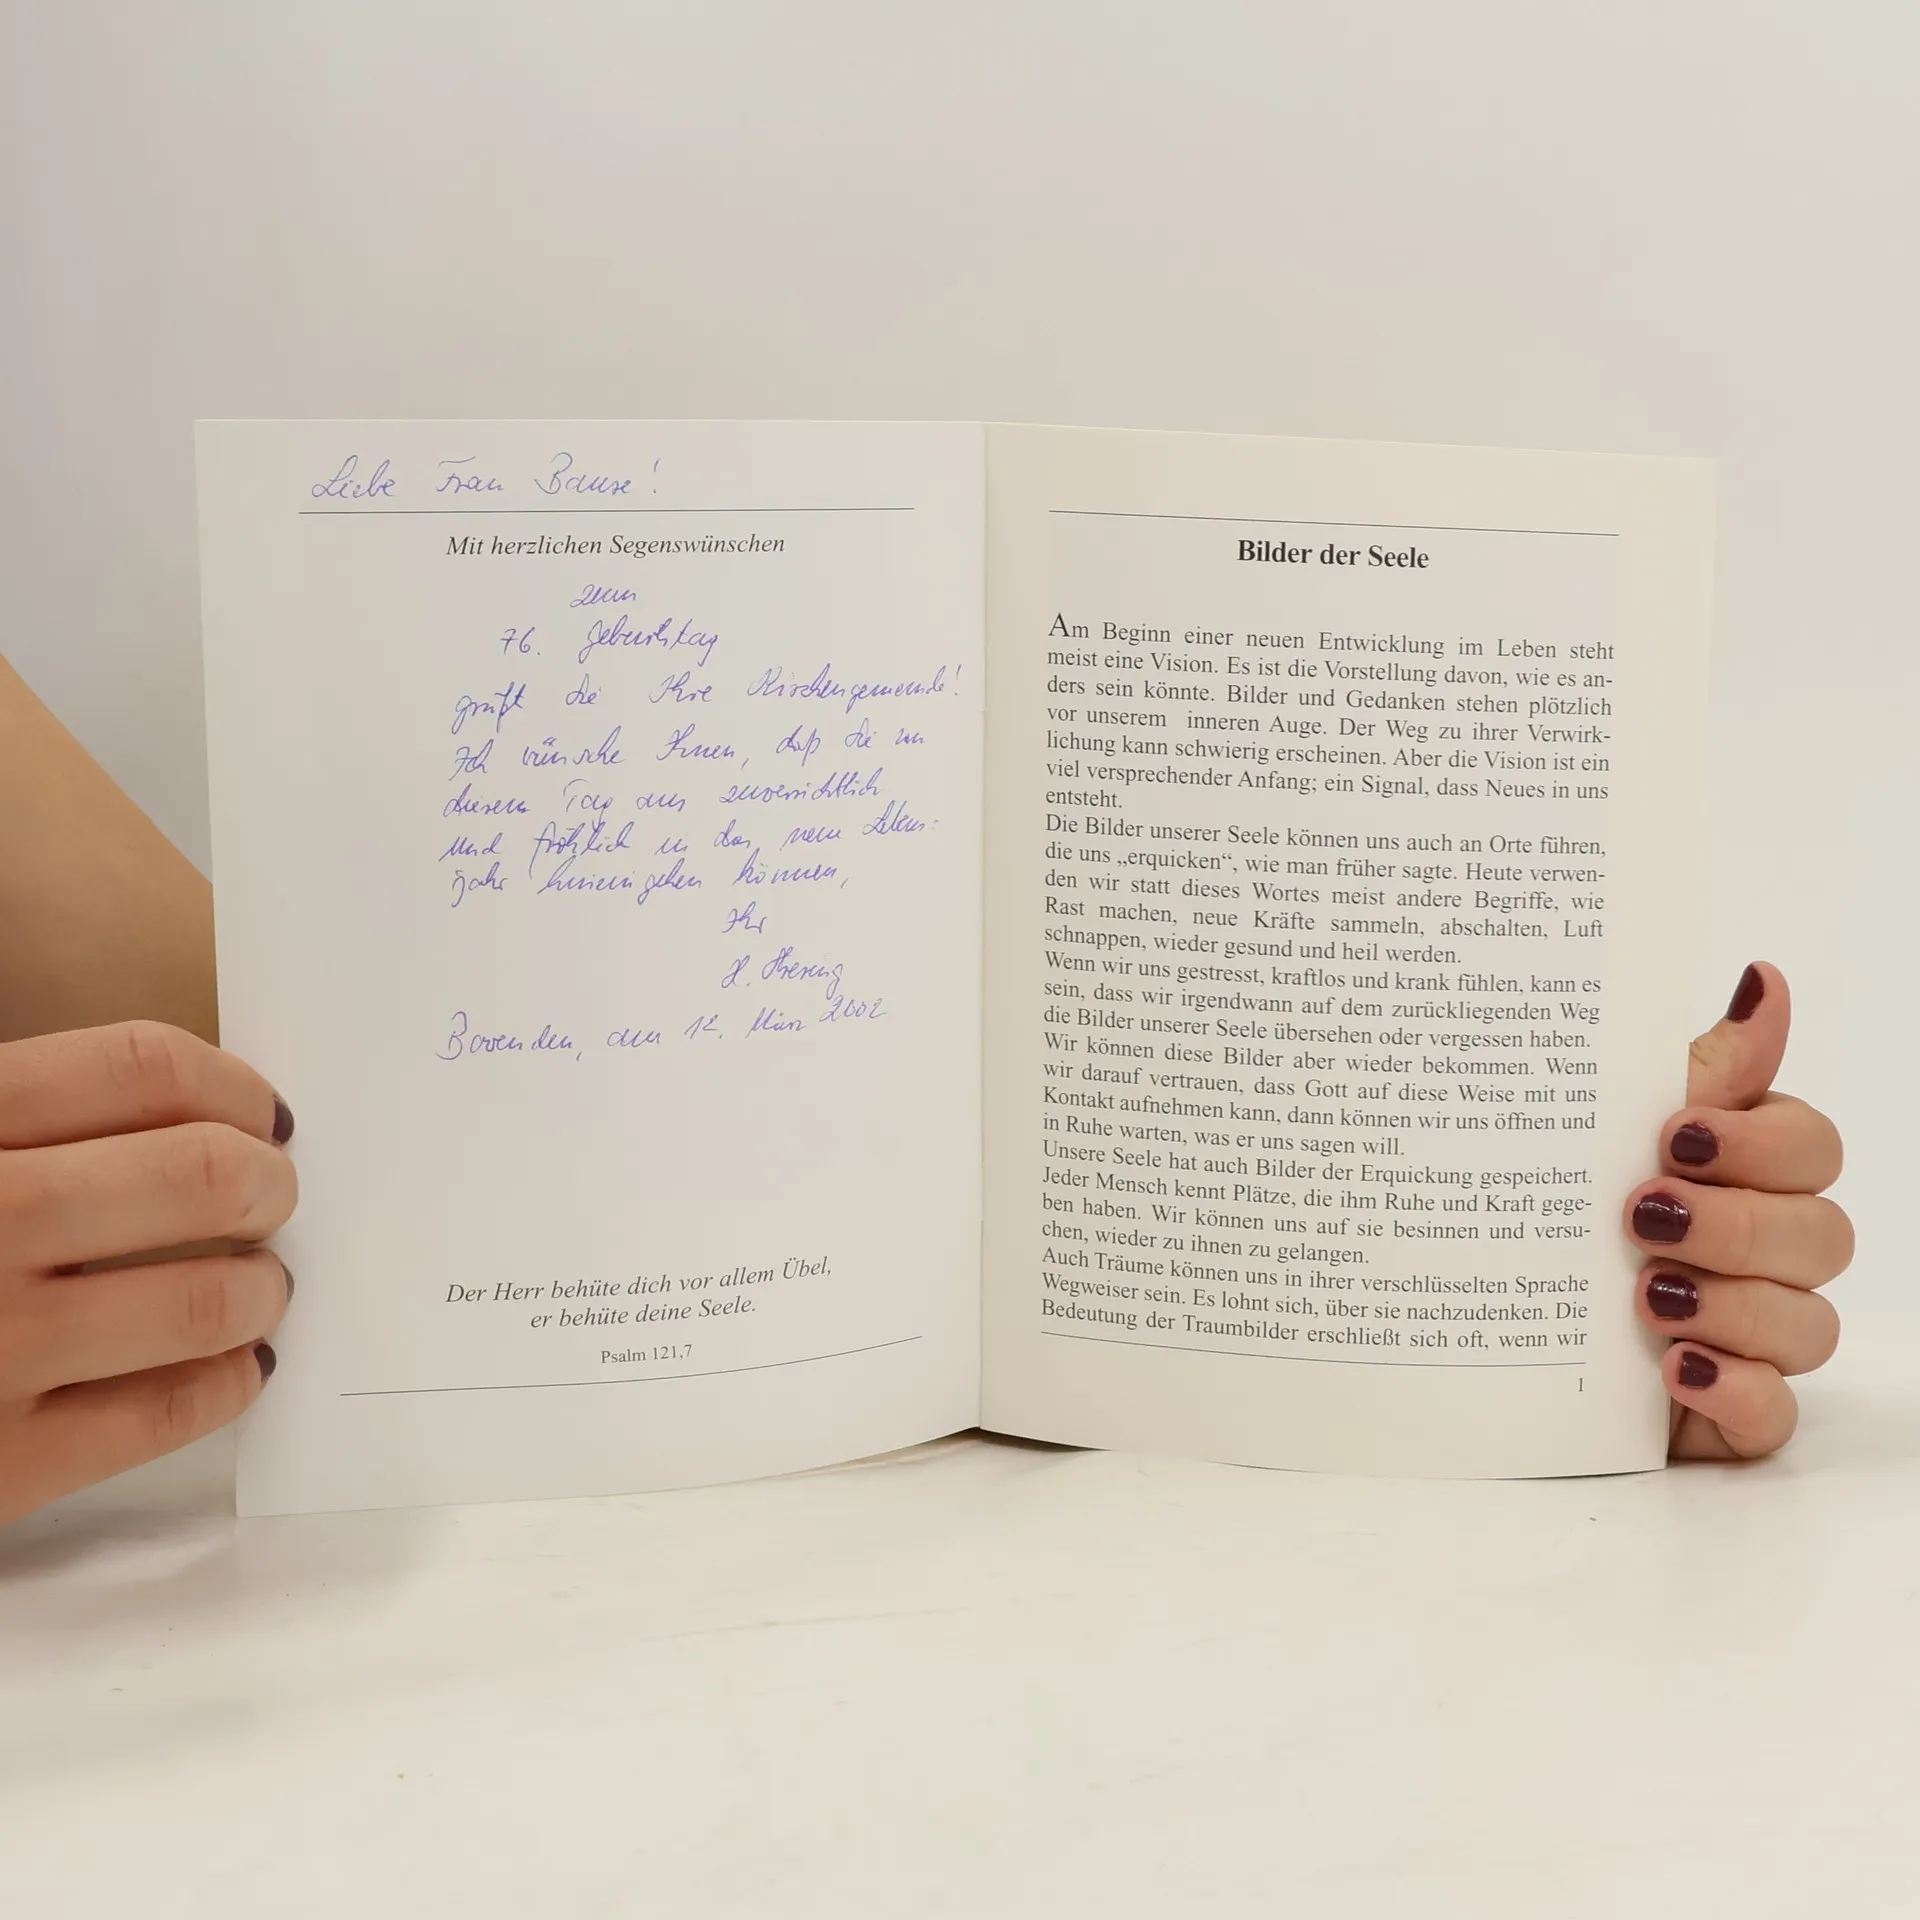 Liebe Frau Bause!
Mit herzlichen Segenswünschen
zum
76. Geburtstag
grüßt Sie Ihre Kirchengemeinde!
Ich wünsche Ihnen, daß Sie an
diesem Tag aus zuversichtlich
und fröhlich in das neue Lebens-
jahr hineingehen können,
Ihr
H.
Bovenden, am 12. März 2002
Der Herr behüte dich vor allem Übel,
er behüte deine Seele.
Psalm 121,7
Bilder der Seele
Am Beginn einer neuen Entwicklung im Leben steht
meist eine Vision. Es ist die Vorstellung davon, wie es an-
ders sein könnte. Bilder und Gedanken stehen plötzlich
vor unserem inneren Auge. Der Weg zu ihrer Verwirk-
lichung kann schwierig erscheinen. Aber die Vision ist ein
viel versprechender Anfang; ein Signal, dass Neues in uns
entsteht.
Die Bilder unserer Seele können uns auch an Orte führen,
die uns „erquicken“, wie man früher sagte. Heute verwen-
den wir statt dieses Wortes meist andere Begriffe, wie
Rast machen, neue Kräfte sammeln, abschalten, Luft
schnappen, wieder gesund und heil werden.
Wenn wir uns gestresst, kraftlos und krank fühlen, kann es
sein, dass wir irgendwann auf dem zurückliegenden Weg
die Bilder unserer Seele übersehen oder vergessen haben.
Wir können diese Bilder aber wieder bekommen. Wenn
wir darauf vertrauen, dass Gott auf diese Weise mit uns
Kontakt aufnehmen kann, dann können wir uns öffnen und
in Ruhe warten, was er uns sagen will.
Unsere Seele hat auch Bilder der Erquickung gespeichert.
Jeder Mensch kennt Plätze, die ihm Ruhe und Kraft gege-
ben haben. Wir können uns auf sie besinnen und versu-
chen, wieder zu ihnen zu gelangen.
Auch Träume können uns in ihrer verschlüsselten Sprache
Wegweiser sein. Es lohnt sich, über sie nachzudenken. Die
Bedeutung der Traumbilder erschließt sich oft, wenn wir
1